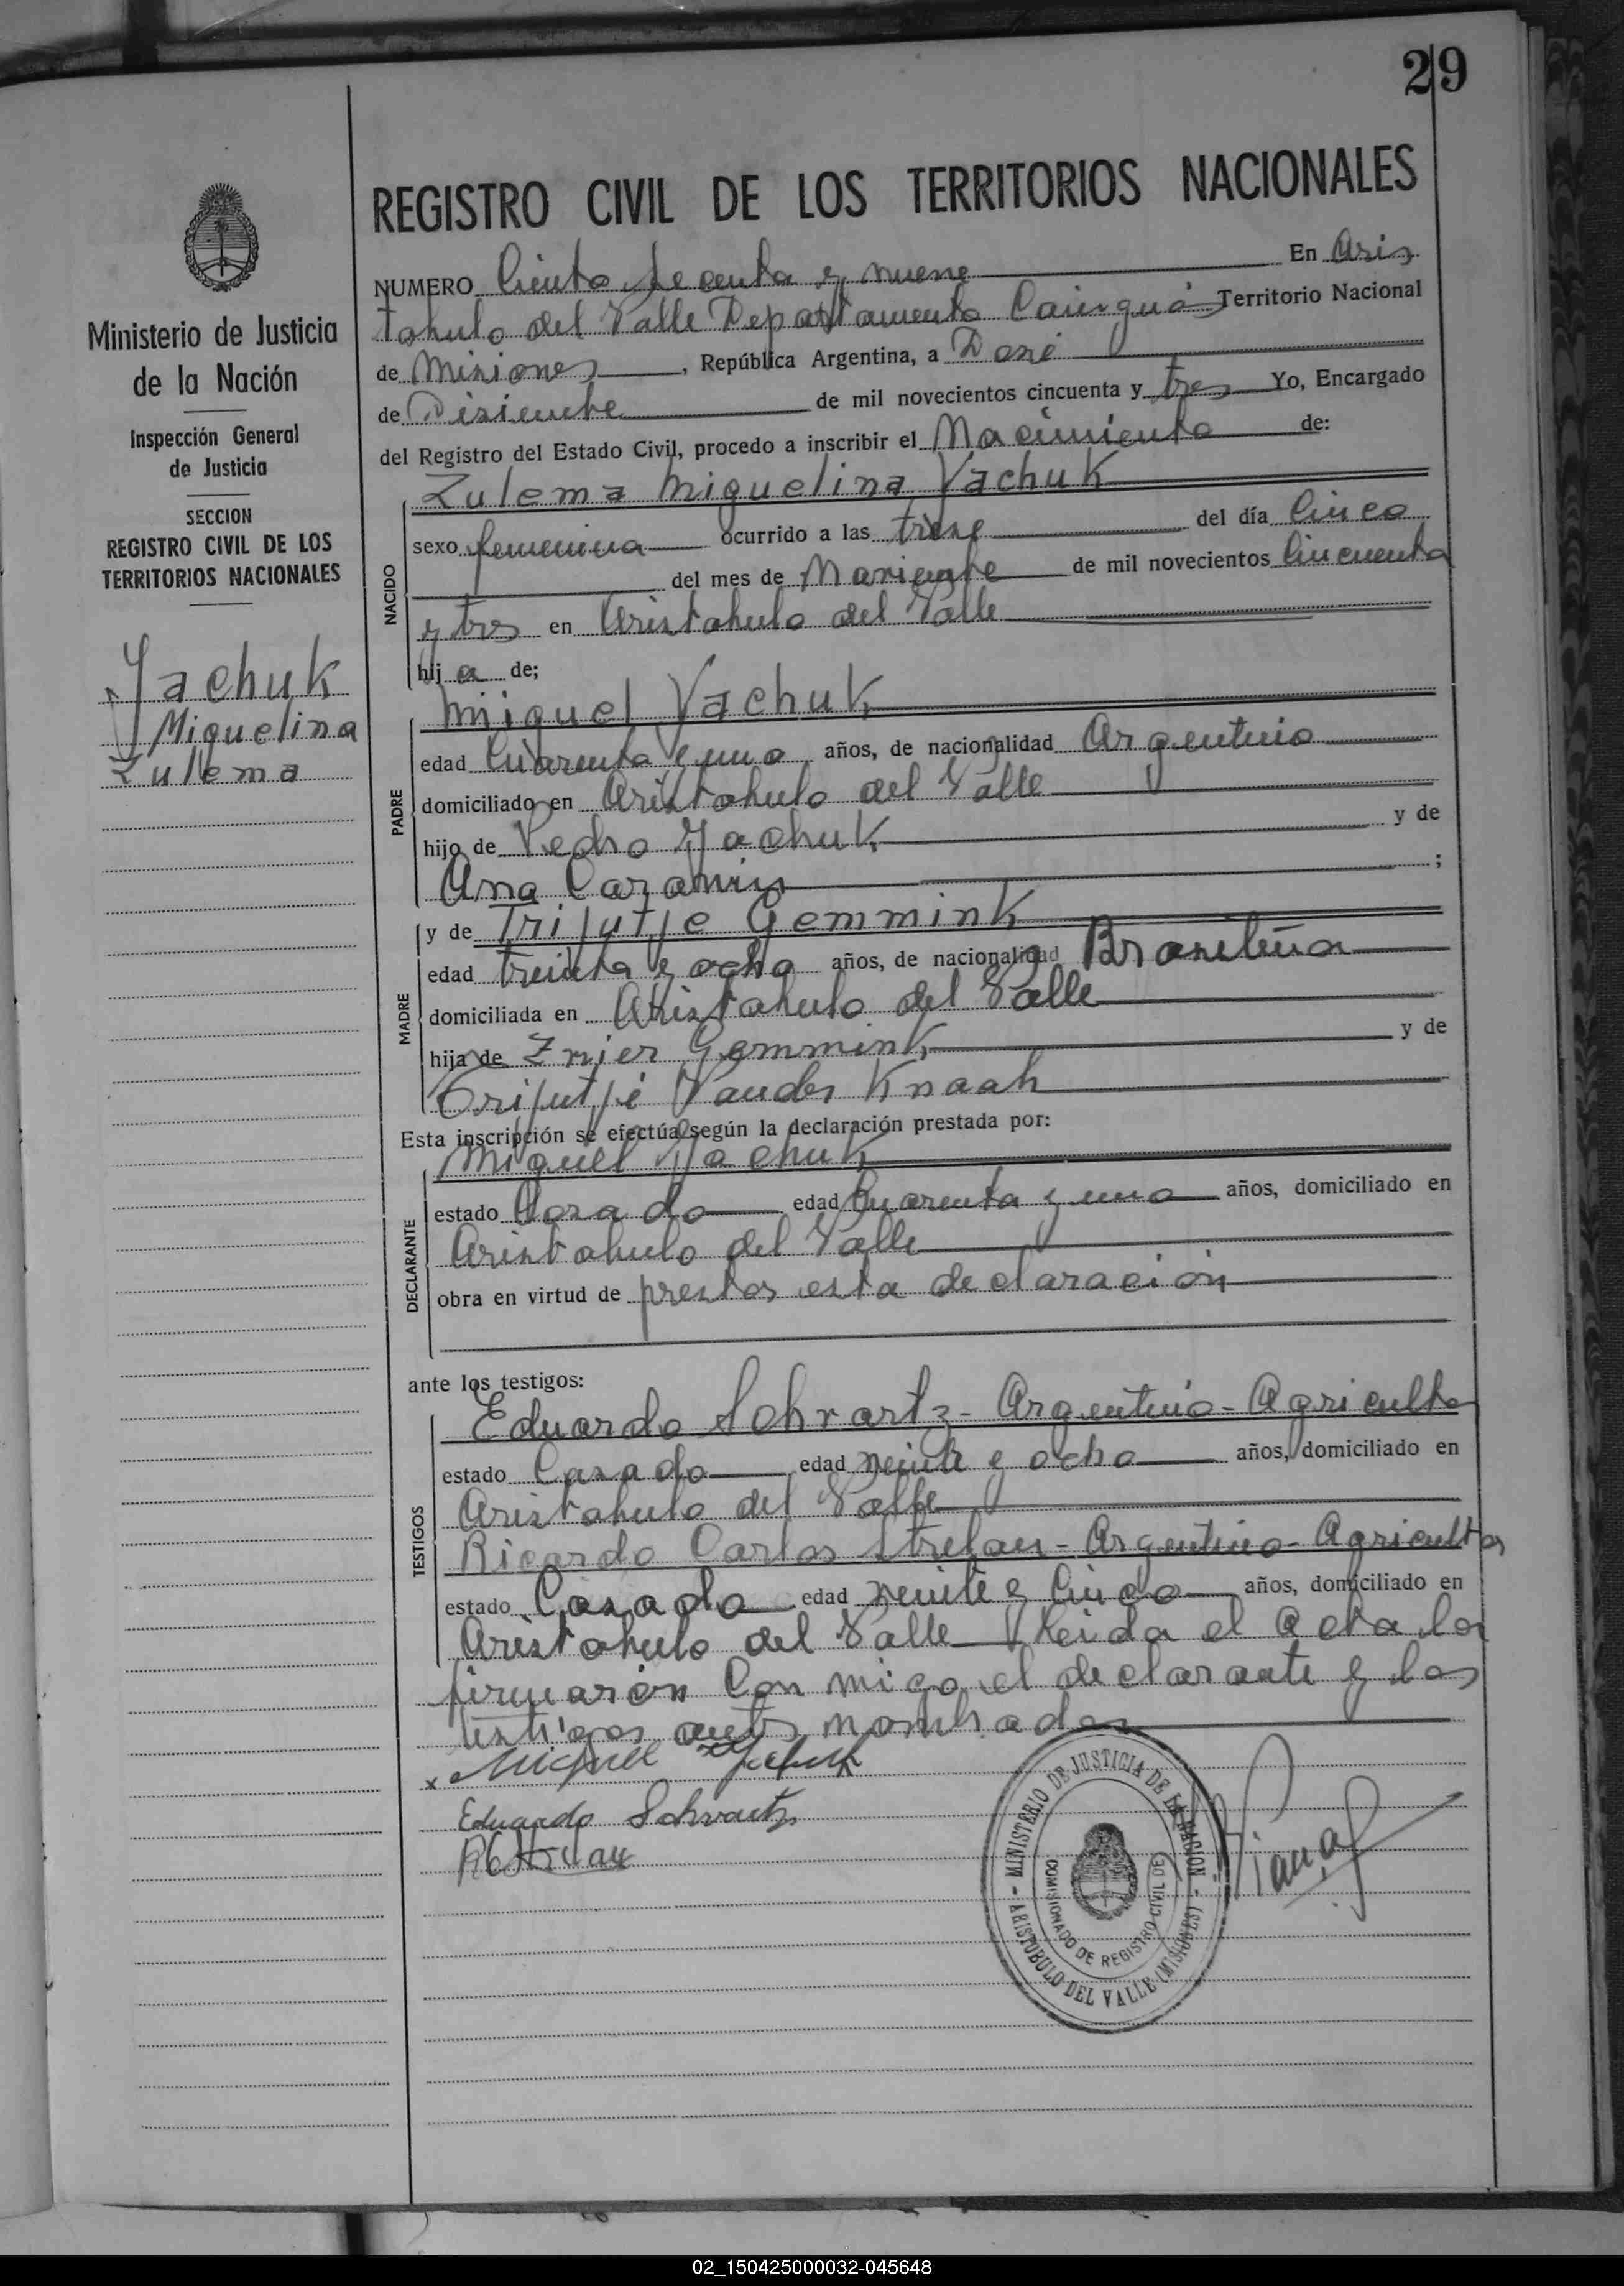 29
REGISTRO CIVIL DE LOS TERRITORIOS NACIONALES
NUMERO Ciento y nueve En Aris
tobulo del Valle Departamento Cainguás Territorio Nacional
de Misiones, República Argentina, a Dose
de Disiembre de mil novecientos cincuenta y tres Yo, Encargado
del Registro del Estado Civil, procedo a inscribir el Nacimiento de:
NACIDO
Zulema Miguelina Yachuk
sexo femenina ocurrido a las trese del día Cinco
del mes de Noviembre de mil novecientos Cincuenta
y tres en Aristobulo del Valle
hij a de;
PADRE
Miguel Yachuk
edad Cuarenta y uno años, de nacionalidad Argentino
domiciliado en Aristobulo del Valle
hijo de Pedro Yachuk y de
Ana ;
MADRE
y de Trijutje Gemmink
edad treinta y ocho años, de nacionalidad Brasileña
domiciliada en Aristobulo del Valle
hija de Gemmink y de
Trijutje Vander Knaah
Esta inscripción se efectúa según la declaración prestada por:
DECLARANTE
Miguel Yachuk
estado Casado edad Cuarenta y uno años, domiciliado en
Aristobulo del Valle
obra en virtud de prestar esta declaración
ante los testigos:
TESTIGOS
Eduardo Schvartz - Argentino - Agriculto
estado Casado edad veinte y ocho años, domiciliado en
Aristobulo del Valle
Ricardo Carlos Strelau - Argentino - Agricultor
estado Casado edad veinte y Cinco años, domiciliado en
Aristobulo del Valle leida el acta la
firmarón Con migo el declarante y los
testigos antes nombrados
x Miguel Yachuk
Eduardo Schvartz
RCStrelau
MINISTERIO DE JUSTICIA DE LA NACION - ARISTOBULO DEL VALLE (MISIONES) -
COMISIONADO DE REGISTRO CIVIL DE
Ministerio de Justicia
de la Nación
Inspección General
de Justicia
SECCION
REGISTRO CIVIL DE LOS
TERRITORIOS NACIONALES
Yachuk
Miguelina
Zulema
02_150425000032-045648